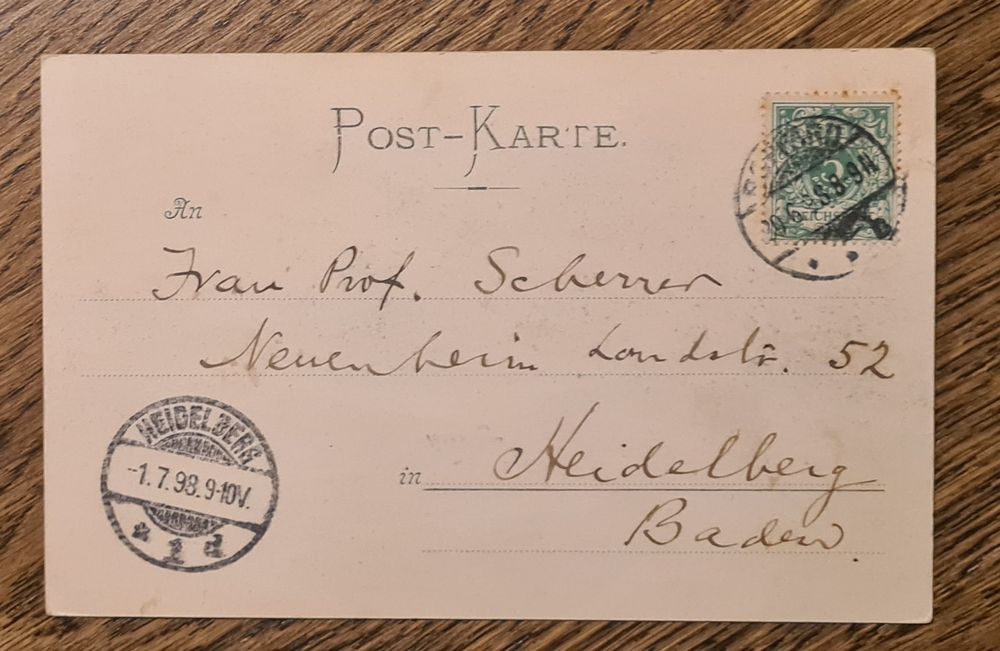 POST-KARTE.
An
Frau Prof. Scherrer
Neuenheim Landstr. 52
in Heidelberg
Baden.
HEIDELBERG.
-1.7.98.9-10V.
* 1 d
8-9N
5
REICHSPOST